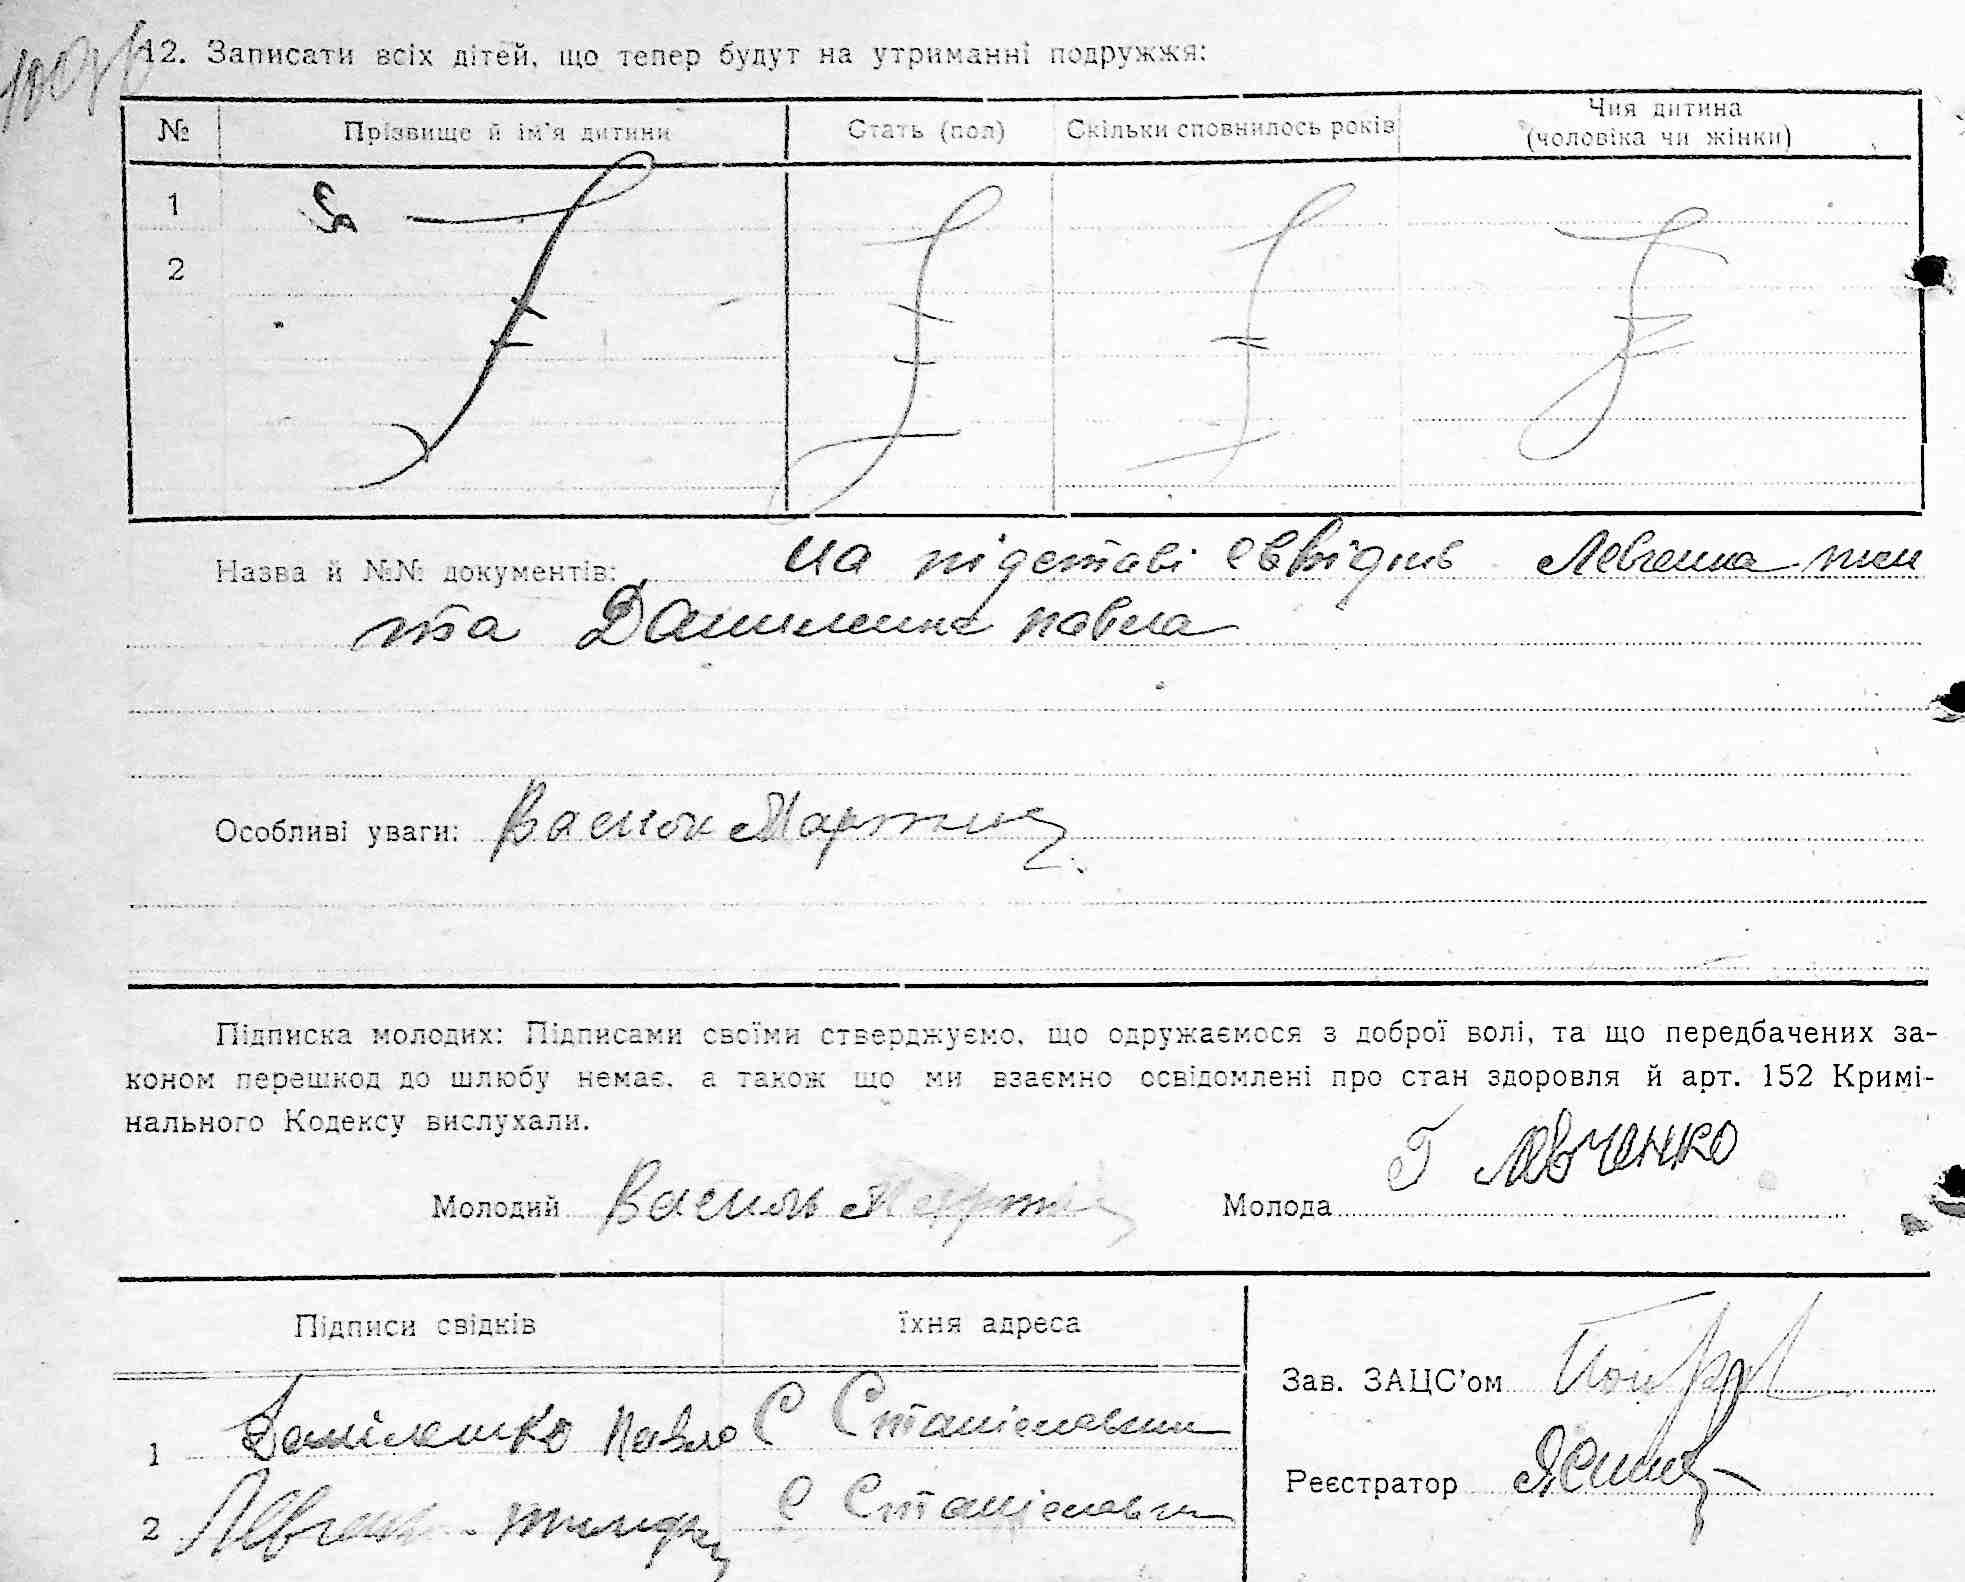 12. Записати всіх дітей, що тепер будут на утриманні подружжя:
№ Прізвище й ім'я дитини Стать (пол) Скільки сповнилось років Чия дитина (чоловіка чи жінки)
1
2
Назва й №№ документів: на підставі Левченка
та Данименка Павла
Особливі уваги: Василь Мартин
Підписка молодих: Підписами своїми стверджуємо, що одружаємося з доброї волі, та що передбачених за-
коном перешкод до шлюбу немає, а також що ми взаємно освідомлені про стан здоровля й арт. 152 Кримі-
нального Кодексу вислухали.
Молодий Василь Мартин Молода Г Левченко
Підписи свідків Їхня адреса
Зав. ЗАЦС'ом
1 Павло С Станіславчик
Реєстратор
2 Левченко С Станіславчик